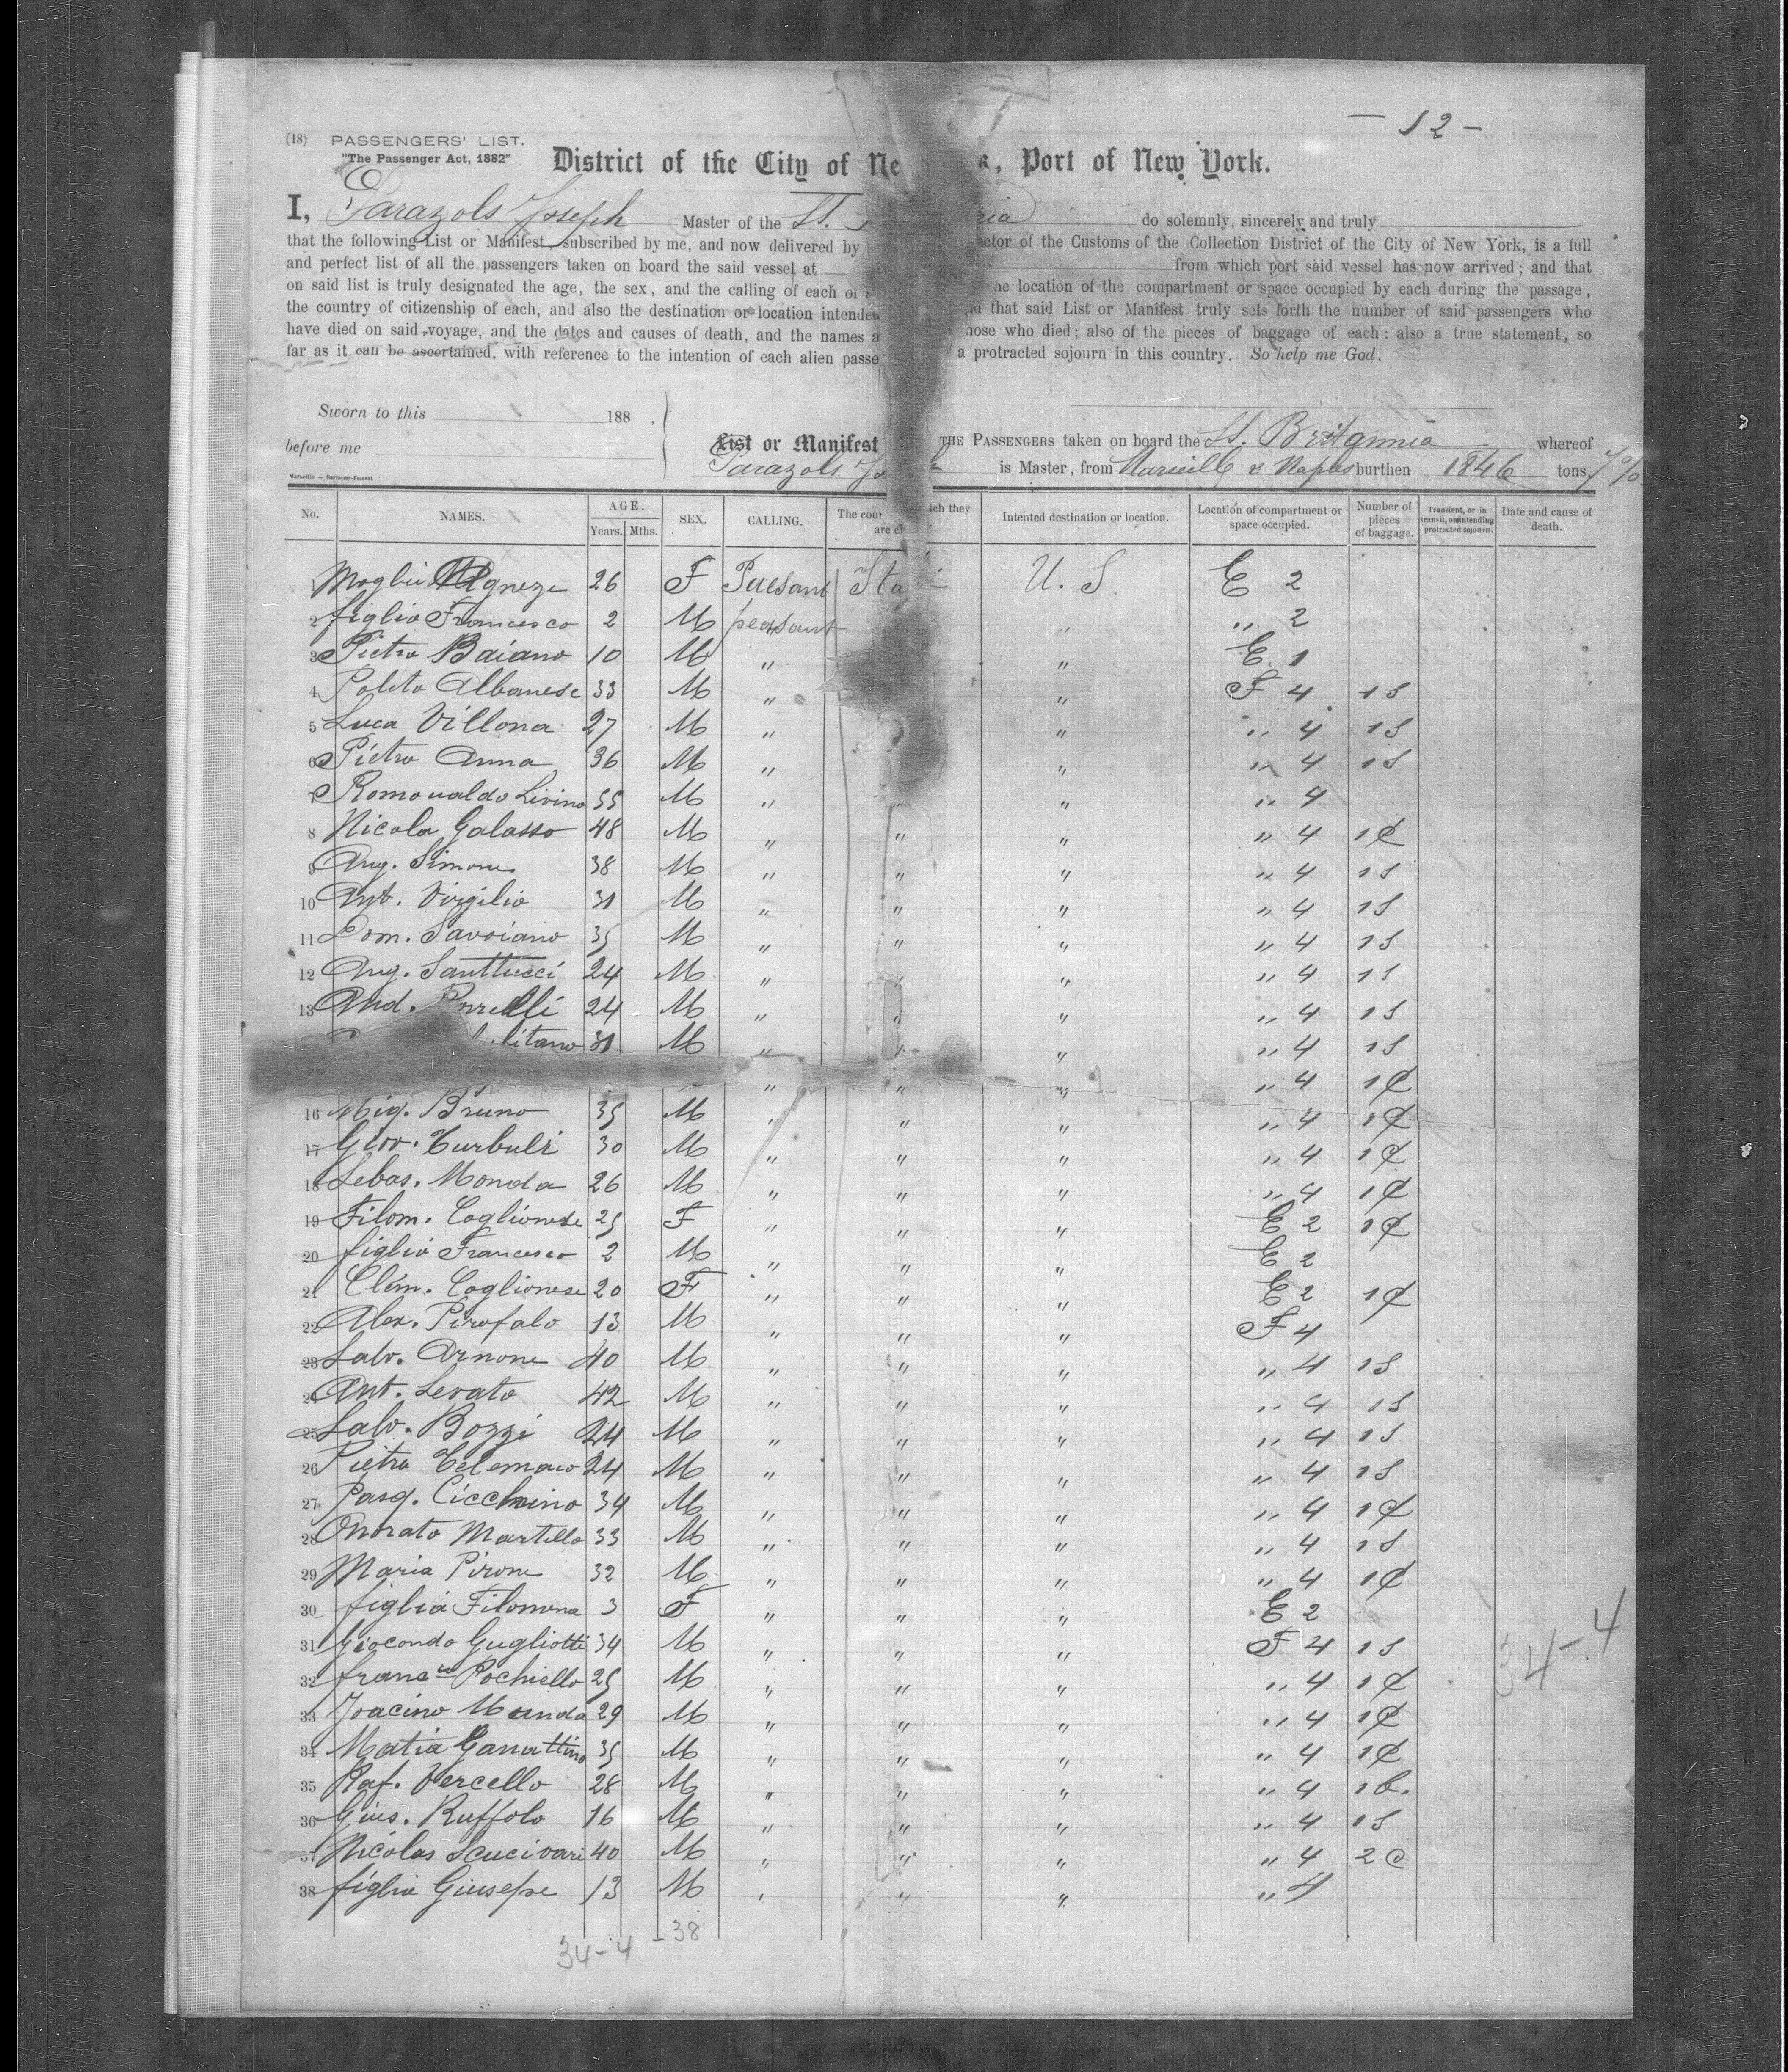 — 12 —
(18) PASSENGERS' LIST.
"The Passenger Act, 1882"
District of the City of Ne k, Port of New York.
I, Parazols Joseph Master of the St. ria do solemnly, sincerely and truly
that the following List or Manifest subscribed by me, and now delivered by ctor of the Customs of the Collection District of the City of New York, is a full
and perfect list of all the passengers taken on board the said vessel at from which port said vessel has now arrived; and that
on said list is truly designated the age, the sex, and the calling of each of he location of the compartment or space occupied by each during the passage,
the country of citizenship of each, and also the destination or location intende that said List or Manifest truly sets forth the number of said passengers who
have died on said voyage, and the dates and causes of death, and the names a hose who died; also of the pieces of baggage of each: also a true statement, so
far as it can be ascertained, with reference to the intention of each alien passe a protracted sojourn in this country. So help me God.
Sworn to this 188 .
before me
List or Manifest THE PASSENGERS taken on board the St. Britannia whereof
Parazols Jo is Master, from Marseille & Naples burthen 1846 tons,
No. NAMES. AGE. Years. Mths. SEX. CALLING. The cou ich they are ci Intented destination or location. Location of compartment or space occupied. Number of pieces of baggage. Transient, or in transit, or intending protracted sojourn. Date and cause of death.
Moglie Agneze 26 F Paesant Ita U. S. E 2
2 figlio Francesco 2 M peasant " " 2
3 Pietro Baiano 10 M " " E 1
4 Polito Albanese 33 M " " F 4 1 S
5 Luca Villona 27 M " " " 4 1 S
6 Pietro Anna 36 M " " " 4 1 S
7 Romoualdo Livino 55 M " " " " 4
8 Nicola Galasso 48 M " " " " 4 1 C
9 Ang. Simone 38 M " " " " 4 1 S
10 Ant. Virgilio 31 M " " " " 4 1 S
11 Dom. Savoiano 35 M " " " " 4 1 S
12 Ang. Santtucci 24 M " " " " 4 1 S
13 And. relli 24 M " " " " 4 1 S
litano 31 M " " " " 4 1 S
" " " " 4 1 C
16 Mig. Bruno 35 M " " " " 4 1 C
17 Giov. Turbuli 30 M " " " " 4 1 C
18 Sebas. Monda 26 M " " " " 4 1 C
19 Filom. Coglionese 25 F " " " E 2 1 C
20 figlio Francesco 2 M " " " E 2
21 Clém. Coglionese 20 F " " " E 2 1 C
22 Alex. Pirofalo 13 M " " " F 4
23 Salv. Arnone 40 M " " " " 4 1 S
24 Ant. Levato 42 M " " " " 4 1 S
25 Salv. Bozzi 24 M " " " " 4 1 S
26 Pietro Telemaco 24 M " " " " 4 1 S
27 Pasq. Cicchino 34 M " " " " 4 1 C
28 Onorato Martello 33 M " " " " 4 1 S
29 Maria Pirone 32 M " " " " 4 1 C
30 figlia Filomena 3 F " " " E 2
31 Giocondo Gugliotti 34 M " " " F 4 1 S
32 Francco Pochiello 25 M " " " " 4 1 C
33 Joacino Munda 29 M " " " " 4 1 C
34 Matia Ganattino 35 M " " " " 4 1 C
35 Raf. Vercello 28 M " " " " 4 1 b.
36 Gius. Ruffolo 16 M " " " " 4 1 S
37 Nicolas Scucivari 40 M " " " " 4 2 C
38 figlio Giusepe 13 M " " " " 4
34-4
34-4 - 38